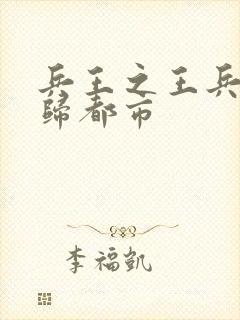 兵王之王兵
歸都市
李福凱